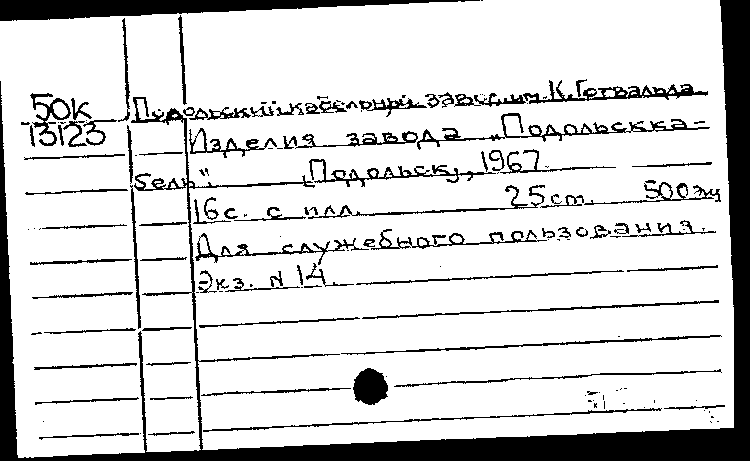 50к Подольский кабельный завод им. К. Готвальда
13123 Изделия завода „Подольскка-
бель". [Подольск], 1967.
16с. с илл. 25см. 500 экз
Для служебного пользования.
Экз. N 14.